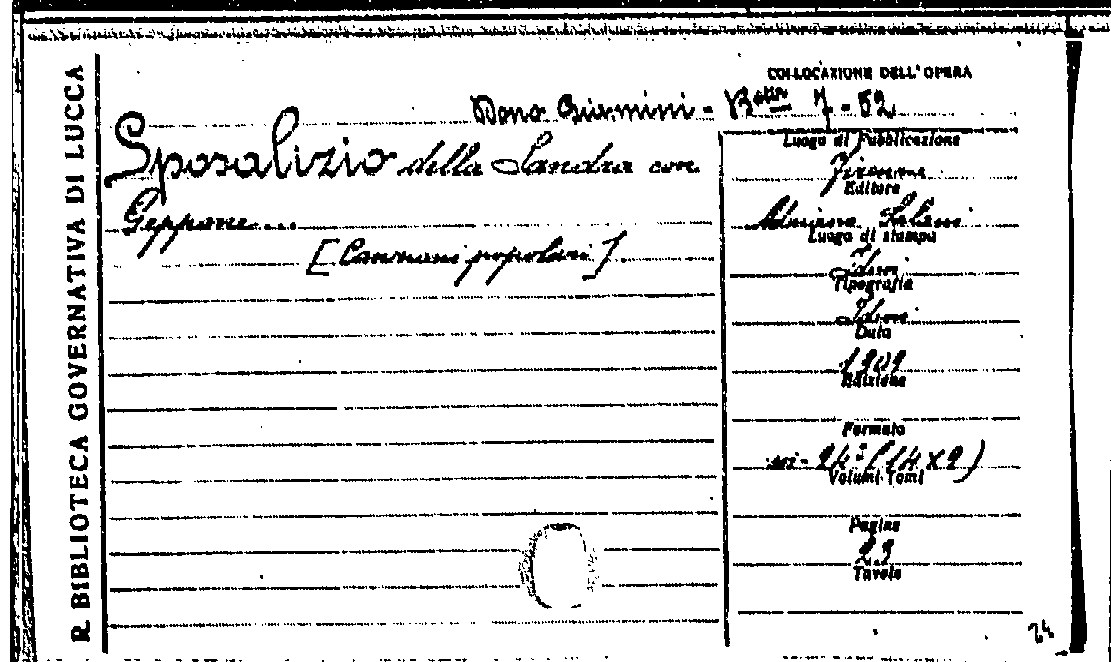 R. BIBLIOTECA GOVERNATIVA DI LUCCA
COLLOCAZIONE DELL'OPERA
Dono Giannini - 7 - 52
Sposalizio della Sandra con
Geppone...
[Canzoni popolari]
Luogo di Pubblicazione
Firenze
Editore
Adriano Salani
Luogo di stampa
Idem
Tipografia
Idem
Data
1909
Edizione
Formato
in-24° (14 x 9)
Volumi-Tomi
Pagine
23
Tavole
24